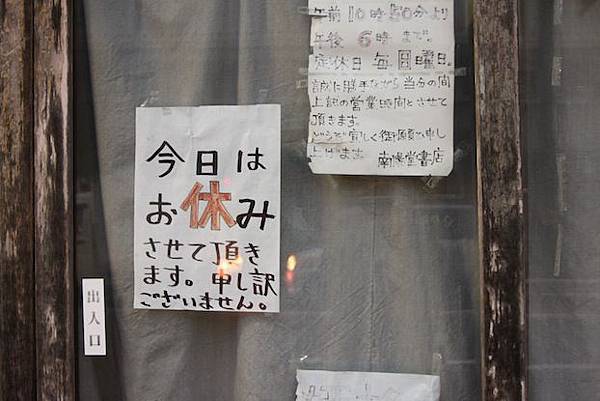 今日は
お休み
させて頂き
ます。申し訳
ございません。
午前10時30分より
午後6時まで。
定休日毎月曜日。
誠に勝手ながら当分の間
上記の営業時間とさせて
頂きます。
どうぞ宜しく御願い申し
上げます 南陽堂書店
出入口